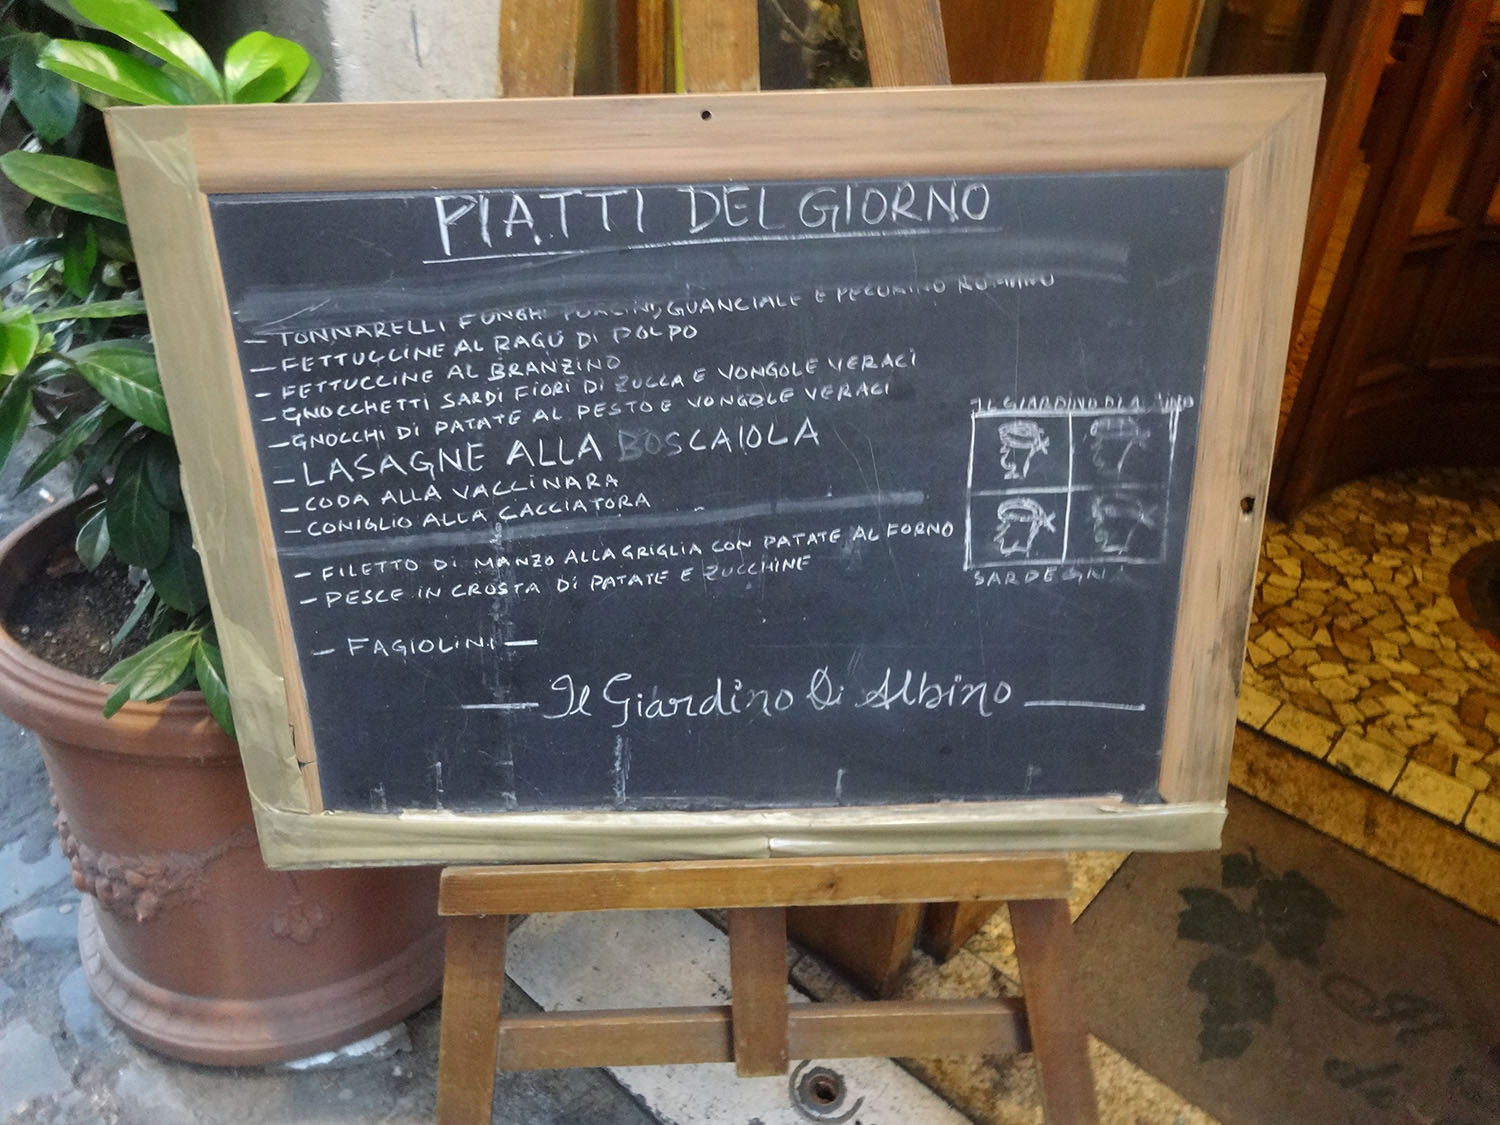 PIATTI DEL GIORNO
- TONNARELLI FUNGHI PORCINI, GUANCIALE E PECORINO ROMANO
- FETTUCCINE AL RAGÙ DI POLPO
- FETTUCCINE AL BRANZINO
- GNOCCHETTI SARDI FIORI DI ZUCCA E VONGOLE VERACI
- GNOCCHI DI PATATE AL PESTO E VONGOLE VERACI
- LASAGNE ALLA BOSCAIOLA
- CODA ALLA VACCINARA
- CONIGLIO ALLA CACCIATORA
- FILETTO DI MANZO ALLA GRIGLIA CON PATATE AL FORNO
- PESCE IN CROSTA DI PATATE E ZUCCHINE
- FAGIOLINI —
— Il Giardino Di Albino —
IL GIARDINO DI
SARDEGNA